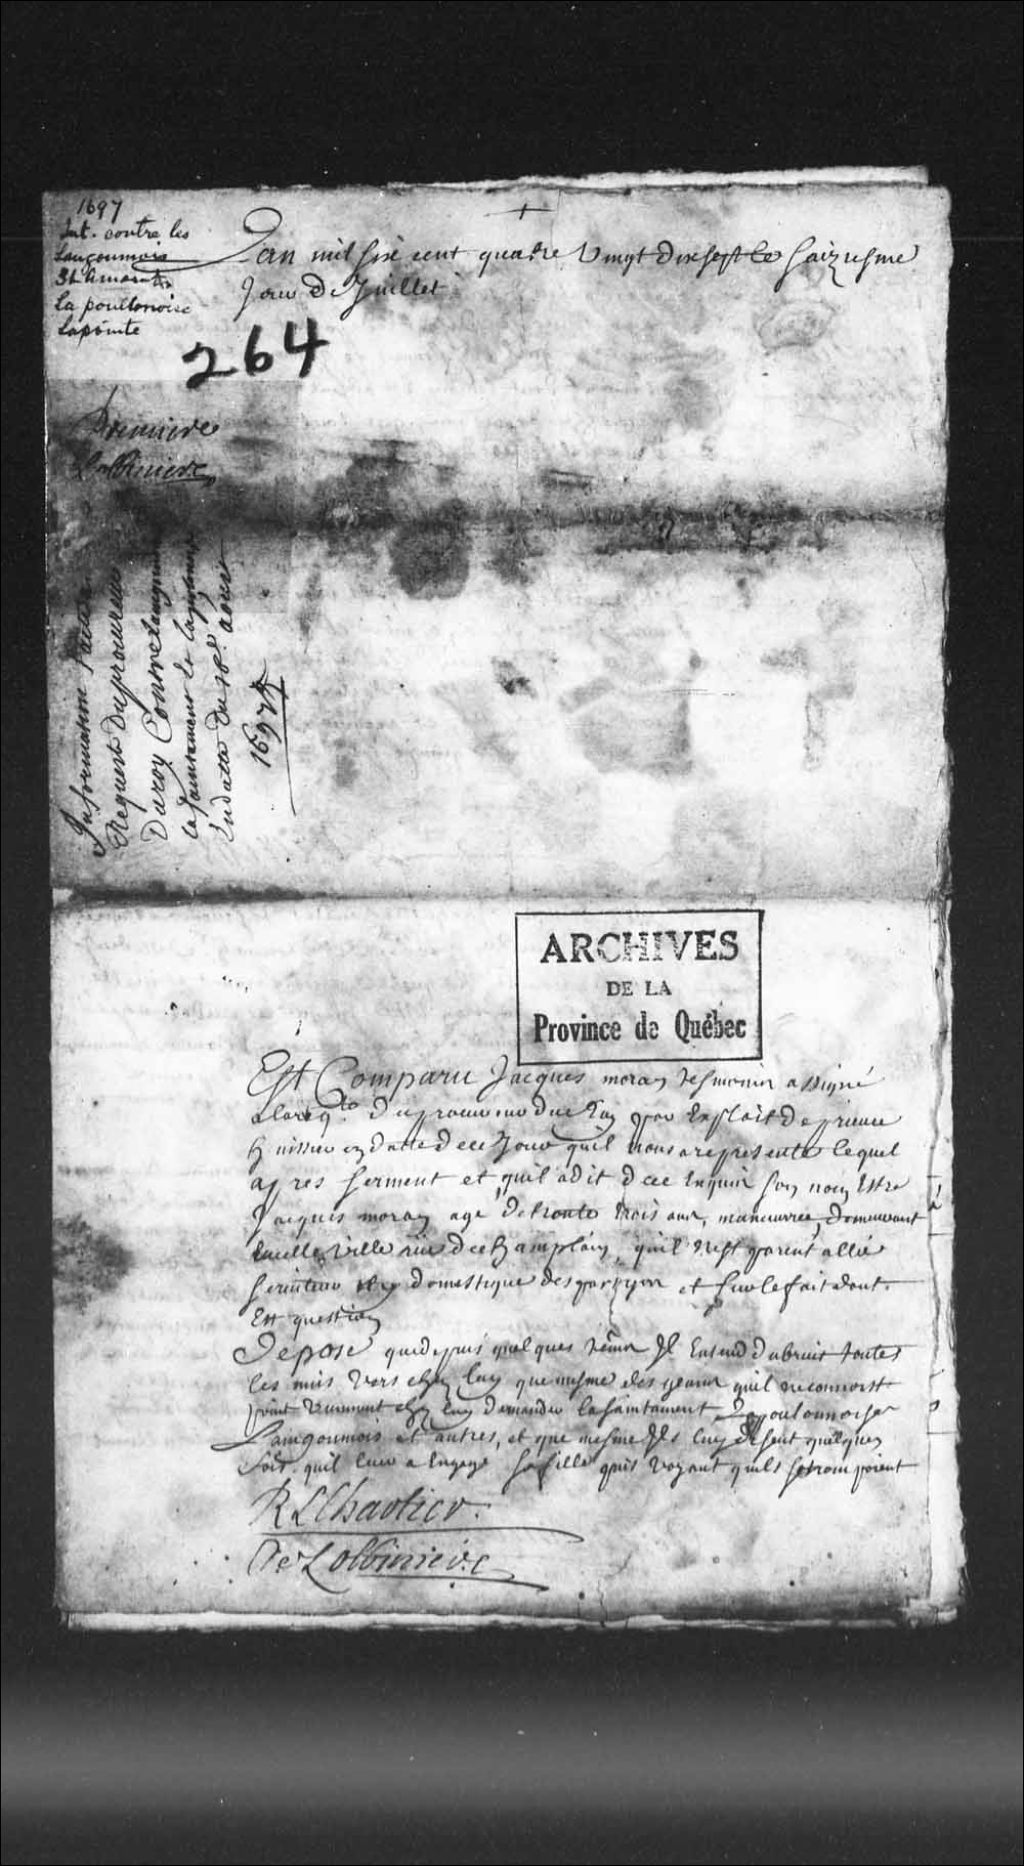 1697
Int. contre les
Langoumois
St Amant
La poullonoise
Lapointe
Lan mil six cent quatre Vingt dix sept le Saiziesme
Jour De Juillet
264
Premiere
Lotbiniere
Information faitte
Requeste Du procureur
Du roy Contre Langoumois
la saintamant la
En datte du 16e aoust
1697
ARCHIVES
DE LA
Province de Québec
Est Comparu Jacques moran tesmoin assigné
a la req.te du procureur du Roy par Exploit De prieur
huissier en datte de ce Jour quil nous a representé lequel
apres serment et quil a dit de ce Enquis son nom Estre
Jacques moran agé De trente trois ans, manœuvre, demeurant
En cette Ville rüe de Champlain, quil n'est parent allié
serviteur ny domestique des partyes et sur le fait dont
Est question
Depose que depuis quelques temps Il Entend du bruit toutes
les nuis Vers chez luy que mesme des gens quil ne connoist
point Viennent chez luy demander la saintamant La poulonnoise
Langoumois et autres, et que mesme Ils luy disent quelques
fois quil leur a Engagé sa fille puis voyant quils se trompoient
R L Chartier
De Lotbiniere